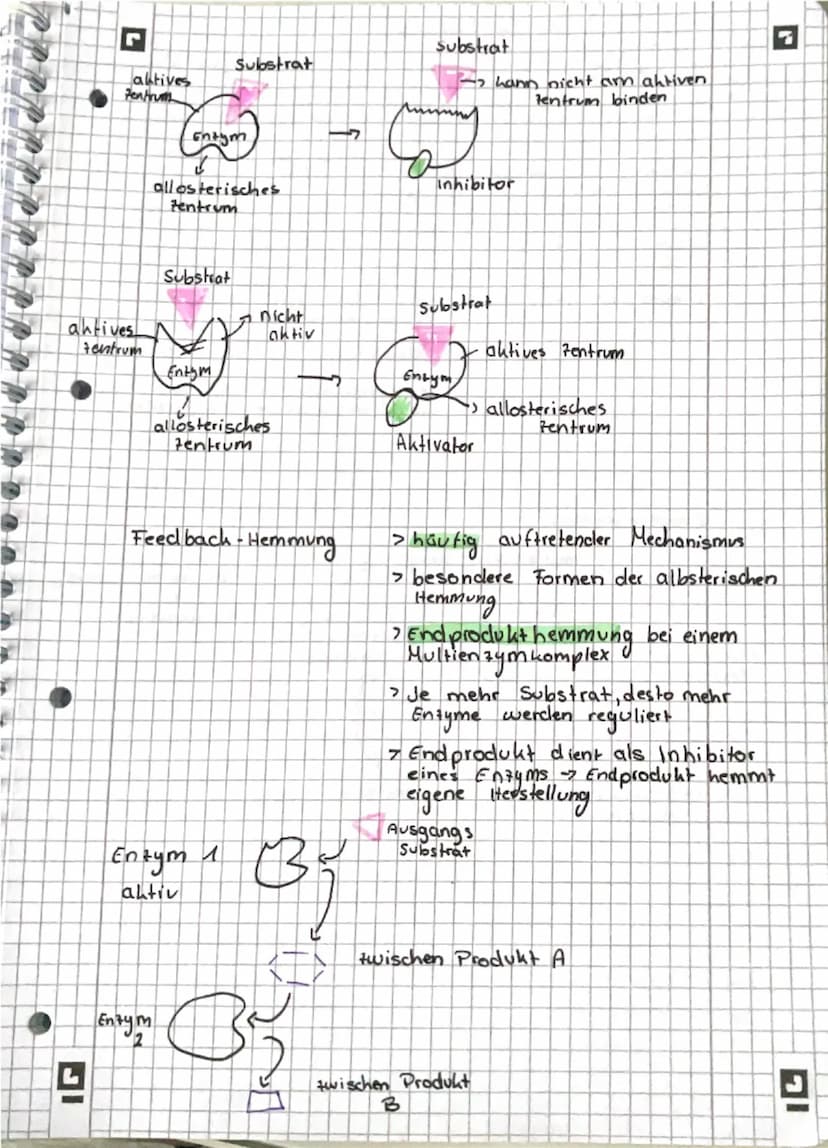 Substrat
aktives
Zentrum
Enzym
allosterisches
Zentrum
Substrat
→ kann nicht am aktiven
Zentrum binden
Inhibitor
Substrat
nicht
aktiv
aktives
Zentrum
Enzym
allosterisches
Zentrum
Substrat
aktives Zentrum
Enzym
allosterisches
Zentrum
Aktivator
Feedback-Hemmung
> häufig auftretender Mechanismus
> besondere Formen der allosterischen
Hemmung
> Endprodukthemmung bei einem
Multienzymkomplex
> Je mehr Substrat, desto mehr
Enzyme werden reguliert
> Endprodukt dient als Inhibitor
eines Enzyms → Endprodukt hemmt
eigene Herstellung
Ausgangs
Substrat
Enzym 1
aktiv
zwischen Produkt A
Enzym
2
zwischen Produkt
B